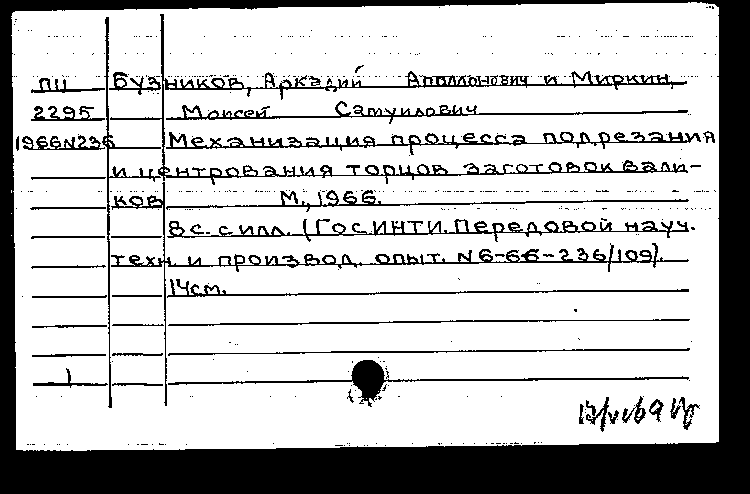 ПЦ Бузников, Аркадий Аполлонович и Миркин,
2295 Моисей Самуилович
1966N236 Механизация процесса подрезания
и центрования торцов заготовок вали-
ков М., 1966.
8 с. с илл. (ГосИНТИ. Передовой науч.
техн. и производ. опыт. N6-66-236/109).
14см.